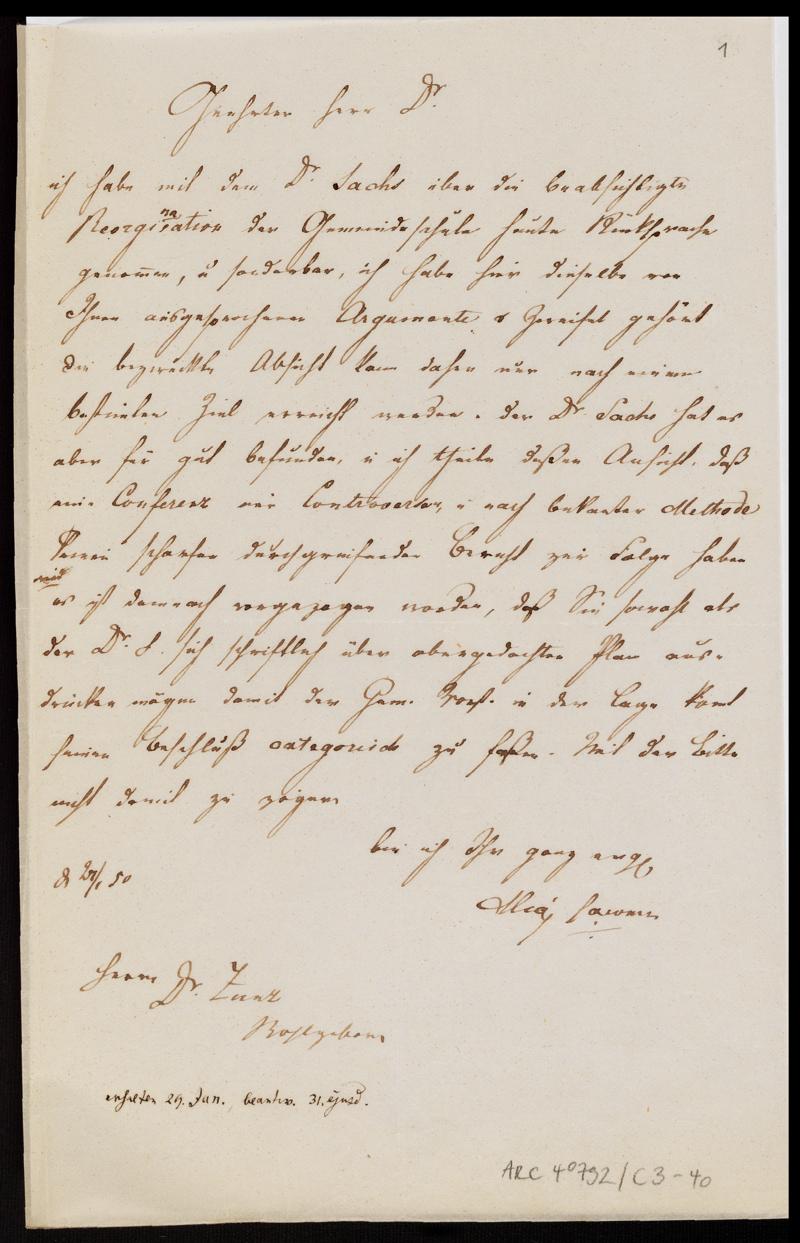 1
Geehrter Herr Dr.
ich habe mit dem Dr. Sachs über die beabsichtigte
Reorgination der Gemeindeschule heute Rücksprache
genommen, u sonderbar, ich habe hier dieselbe von
Ihnen ausgesprochenen Argumente & Zweifel gehört
die bezweckte Absicht kann daher nur nach einem
bestimten Ziel erreicht werden. der Dr Sachs hat es
aber für gut befunden, u ich theile deßen Ansicht, daß
eine Conferenz nur Controversen, u nach bekanter Methode
keinen scharfen durchgreifenden Bericht zur Folge haben
wird
es ist demnach vorgezogen worden, daß Sie sowohl als
der Dr. S. sich schriftlich über obengedachten Plan aus-
drücken mögen damit der Gem. Vorst. in der Lage komt
seinen Beschluß categorisch zu faßen. Mit der Bitte
nicht damit zu zögern
bin ich Ihr ganz erg
50
Herrn Dr. Zunz
Wohlgeboren
erhalten 29. Jan., beantw. 31. ejusd.
ARC 4º792/C3-40